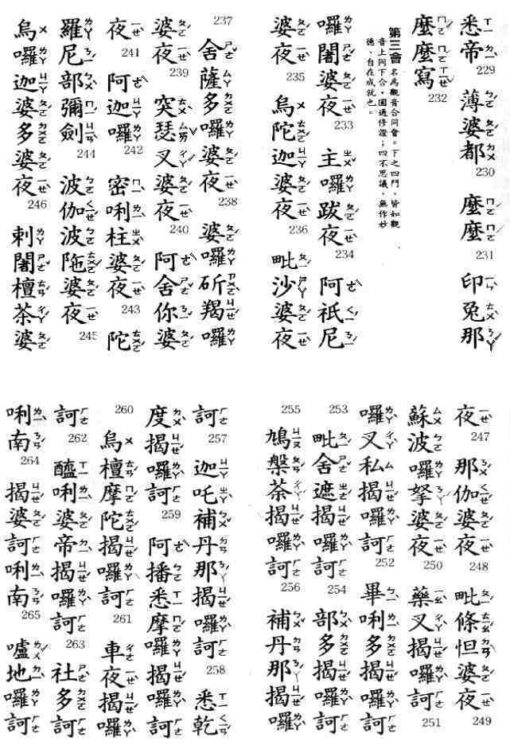 悉帝 229 薄婆都 230 麼麼 231 印兔那
麼麼寫 232
第三會 名為觀音合同會。下之四門,皆如觀
音上同下合,圓通修證;四不思議,無作妙
德,自在成就也。
囉闍婆夜 233 主囉跋夜 234 阿祇尼
婆夜 235 烏陀迦婆夜 236 毗沙婆夜
237 舍薩多囉婆夜 238 婆囉斫羯囉
婆夜 239 突瑟叉婆夜 240 阿舍你婆
夜 241 阿迦囉 242 密唎柱婆夜 243 陀
羅尼部彌劍 244 波伽波陁婆夜 245
烏囉迦婆多婆夜 246 剌闍檀茶婆
夜 247 那伽婆夜 248 毗條怛婆夜 249
蘇波囉拏婆夜 250 藥叉揭囉訶 251
囉叉私揭囉訶 252 畢唎多揭囉訶
253 毗舍遮揭囉訶 254 部多揭囉訶
255 鳩槃茶揭囉訶 256 補丹那揭囉
訶 257 迦吒補丹那揭囉訶 258 悉乾
度揭囉訶 259 阿播悉摩囉揭囉訶
260 烏檀摩陀揭囉訶 261 車夜揭囉
訶 262 醯唎婆帝揭囉訶 263 社多訶
唎南 264 揭婆訶唎南 265 嚧地囉訶